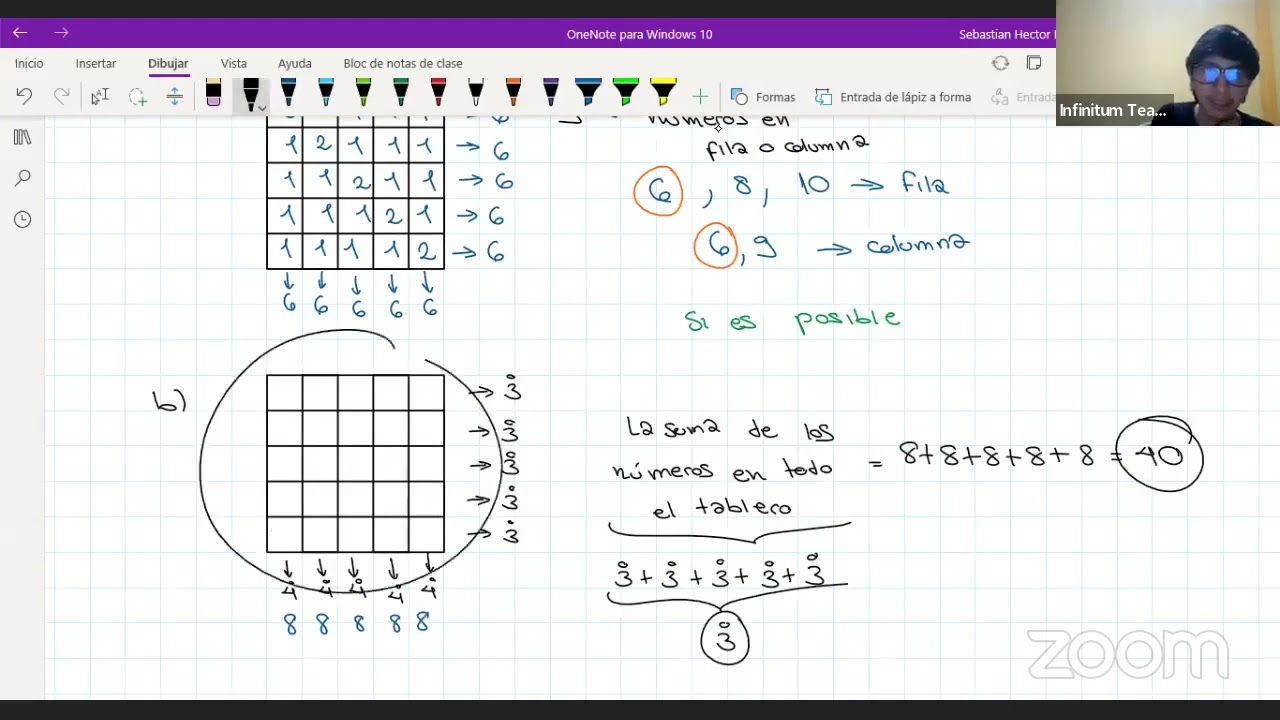 OneNote para Windows 10
Sebastian Hector
Inicio Insertar Dibujar Vista Ayuda Bloc de notas de clase
Formas Entrada de lápiz a forma Entrada
Infinitum Tea...
números en
fila o columna
1 2 1 1 1 → 6
1 1 2 1 1 → 6
1 1 1 2 1 → 6
1 1 1 1 2 → 6
↓ ↓ ↓ ↓ ↓
6 6 6 6 6
6 , 8 , 10 → fila
6, 9 → columna
Si es posible
b)
→ 3̊
→ 3̊
→ 3̊
→ 3̊
→ 3̊
↓ ↓ ↓ ↓ ↓
4̊ 4̊ 4̊ 4̊ 4̊
8 8 8 8 8
La suma de los
números en todo
el tablero
= 8+8+8+8+8 = 40
3̊ + 3̊ + 3̊ + 3̊ + 3̊
3̊
zoom